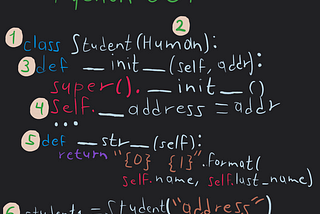 Python OOP
2
1 class Student(Human):
3 def __init__(self, addr):
super().__init__()
4 Self.__address = addr
...
5 def __str__(self):
return "{0} {1}".format(
self.name, self.last_name)
6 students = Student("address")